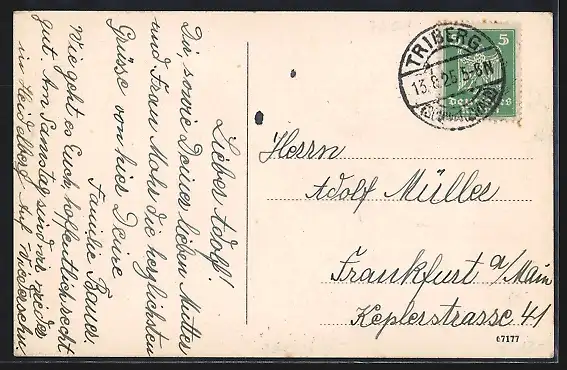 Lieber Adolf!
Dir, sowie Deiner lieben Mutter
und Frau Mohr die herzlichsten
Grüsse von hier Deine
Familie Bauer.
Wie geht es Euch, hoffentlich recht
gut. Am Samstag sind wir wieder
in Heidelberg. Auf Wiedersehn.
TRIBERG
13.8.25.5-6N
(SCHWARZWALD)
5
Deutsches
Herrn
Adolf Müller
Frankfurt a/Main
Keplerstrasse 41
67177